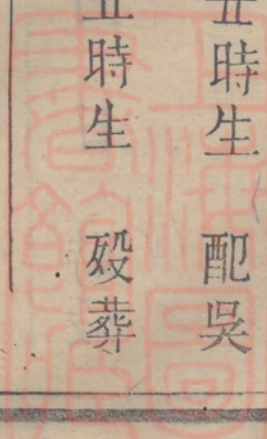 丑時生 配吳
時生 殁葬